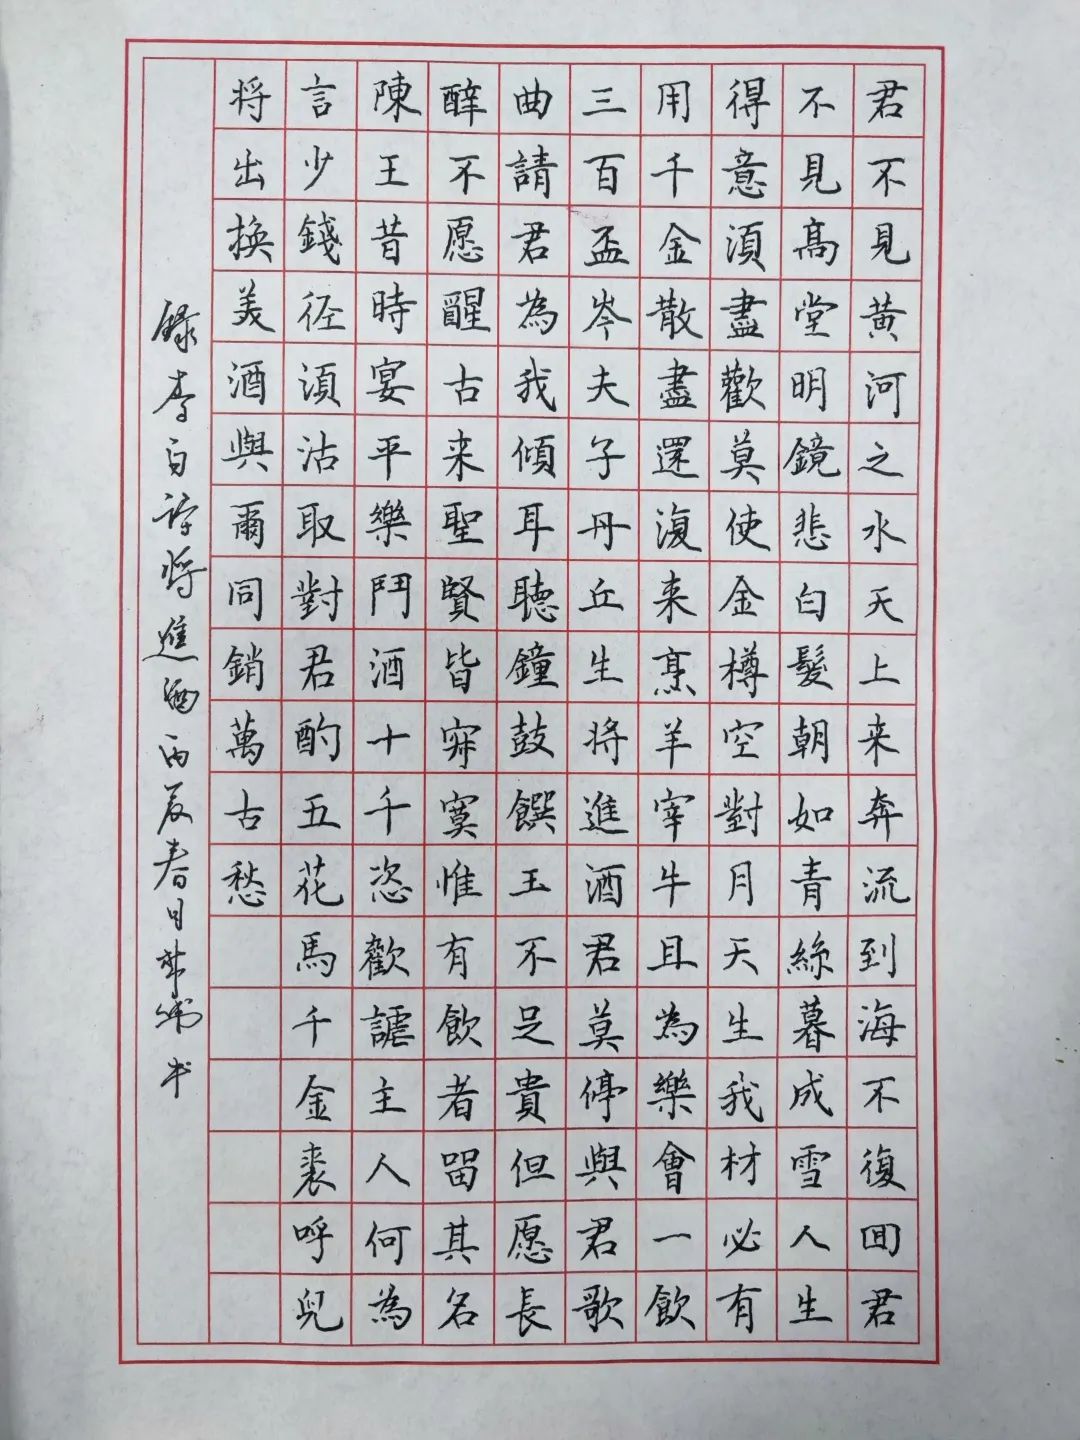 君不見黃河之水天上来奔流到海不復囬君
不見高堂明鏡悲白髮朝如青絲暮成雪人生
得意須盡歡莫使金樽空對月天生我材必有
用千金散盡還復来烹羊宰牛且為樂會一飲
三百盃岑夫子丹丘生将進酒君莫停與君歌
曲請君為我傾耳聽鐘鼓饌玉不足貴但愿長
醉不愿醒古来聖賢皆寂寞惟有飲者留其名
陳王昔時宴平樂鬥酒十千恣歡謔主人何為
言少錢径須沽取對君酌五花馬千金裘呼兒
将出換美酒與爾同銷萬古愁
録李白詩将進酒丙辰春日書